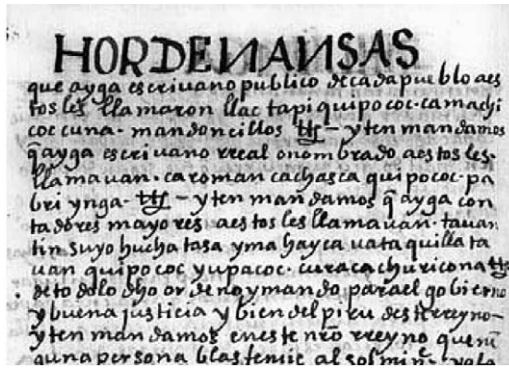 HORDENANSAS
que ayga escriuano publico de cada pueblo aes
tos les llamaron llactapi quipococ · camachi
coc cuna · mandoncillos ttſ — yten mandamos
q̃ ayga escriuano rreal o nombrado aestos les ·
llamauan · caroman cachasca quipococ · pa
bri ynga · ttſ — yten mandamos q̃ ayga con
tadores mayores aestos les llamauan · tauan
tin suyo hucha tasa yma hayca uata quilla ta
uan quipococ yupacoc · curaca churicona ttſ
de todo lo dho ordeno y mando para el gobierno
y buena justicia y bien del piru deste rreyno —
yten mandamos en este nr̃o rreyno que nin
guna persona blasfemie al sol mi